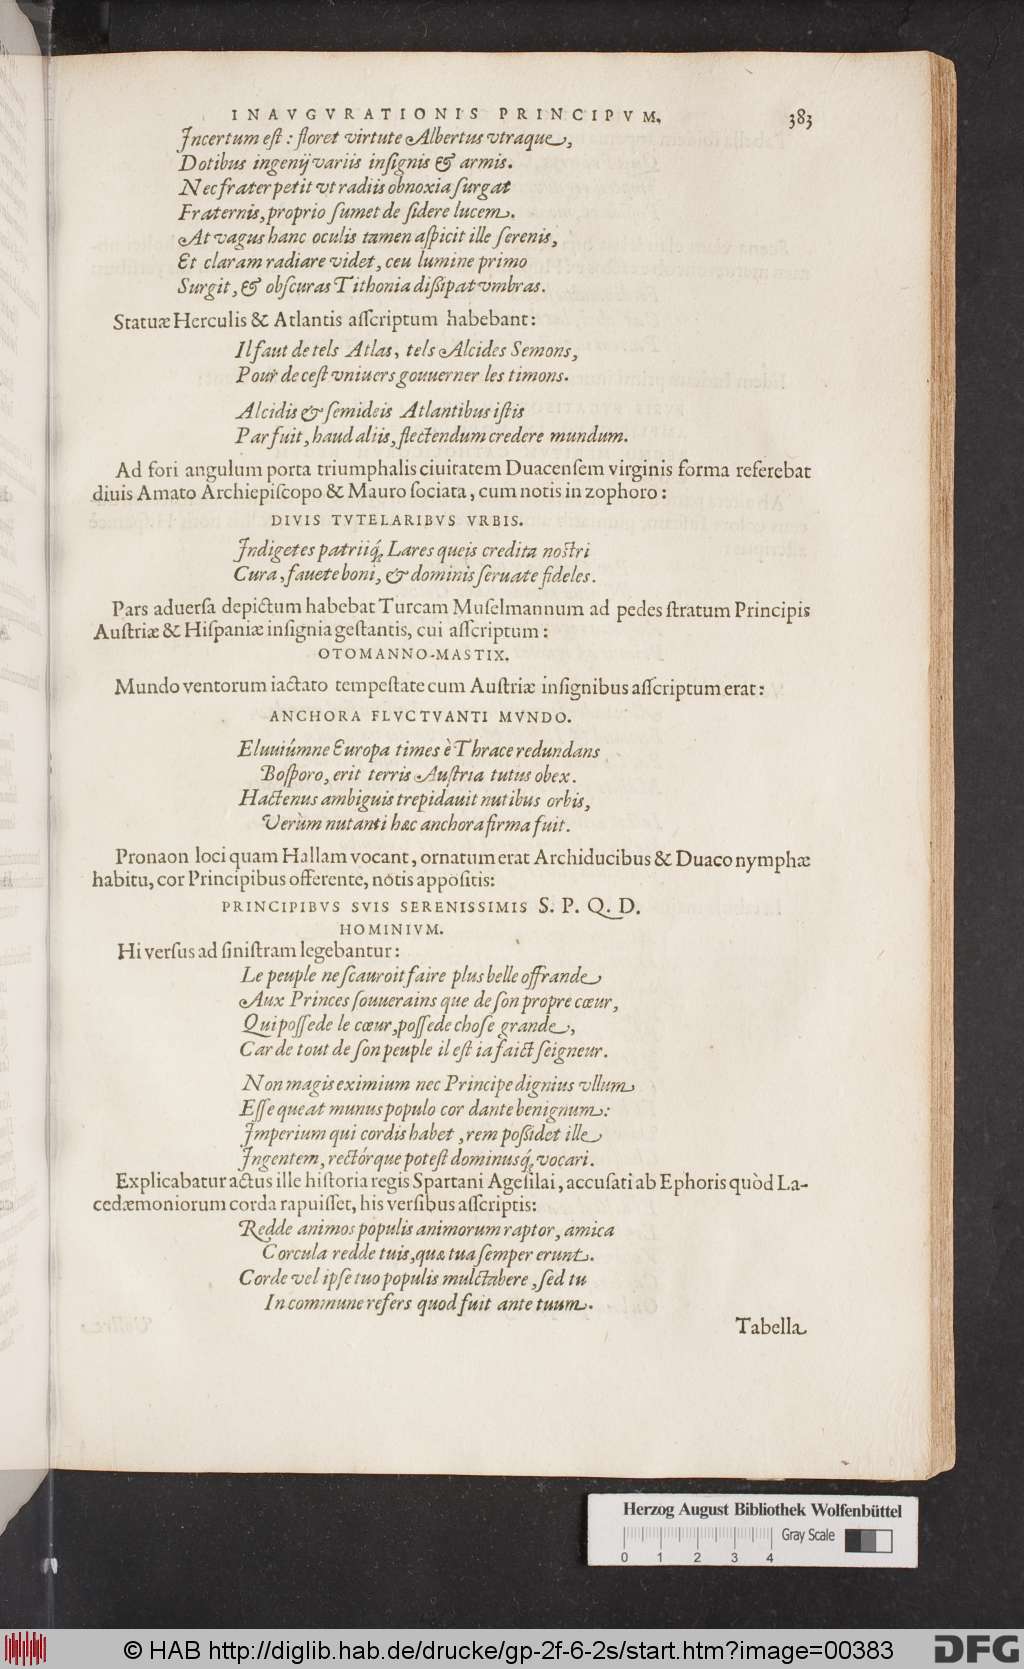 INAVGVRATIONIS PRINCIPVM. 383
Incertum est: floret virtute Albertus vtraque,
Dotibus ingenij variis insignis & armis.
Nec frater petit vt radiis obnoxia surgat
Fraternis, proprio sumet de sidere lucem.
At vagus hanc oculis tamen aspicit ille serenis,
Et claram radiare videt, ceu lumine primo
Surgit, & obscuras Tithonia dissipat vmbras.
Statuæ Herculis & Atlantis asscriptum habebant:
Il faut de tels Atlas, tels Alcides Semons,
Pour de cest vniuers gouuerner les timons.
Alcidis & semideis Atlantibus istis
Par fuit, haud aliis, flectendum credere mundum.
Ad fori angulum porta triumphalis ciuitatem Duacensem virginis forma referebat
diuis Amato Archiepiscopo & Mauro sociata, cum notis in zophoro:
DIVIS TVTELARIBVS VRBIS.
Indigetes patriiq́; Lares queis credita nostri
Cura, fauete boni, & dominis seruate fideles.
Pars aduersa depictum habebat Turcam Muselmannum ad pedes stratum Principis
Austriæ & Hispaniæ insignia gestantis, cui asscriptum:
OTOMANNO-MASTIX.
Mundo ventorum iactato tempestate cum Austriæ insignibus asscriptum erat:
ANCHORA FLVCTVANTI MVNDO.
Eluuiúmne Europa times è Thrace redundans
Bosporo, erit terris Austria tutus obex.
Hactenus ambiguis trepidauit nutibus orbis,
Verùm nutanti hæc anchora firma fuit.
Pronaon loci quam Hallam vocant, ornatum erat Archiducibus & Duaco nymphæ
habitu, cor Principibus offerente, notis appositis:
PRINCIPIBVS SVIS SERENISSIMIS S. P. Q. D.
HOMINIVM.
Hi versus ad sinistram legebantur:
Le peuple ne scauroit faire plus belle offrande
Aux Princes souuerains que de son propre cœur,
Qui possede le cœur, possede chose grande,
Car de tout de son peuple il est ia faict seigneur.
Non magis eximium nec Principe dignius vllum
Esse queat munus populo cor dante benignum:
Imperium qui cordis habet, rem possidet ille
Ingentem, rectórque potest dominusq́; vocari.
Explicabatur actus ille historia regis Spartani Agesilai, accusati ab Ephoris quòd La-
cedæmoniorum corda rapuisset, his versibus asscriptis:
Redde animos populis animorum raptor, amica
Corcula redde tuis, quæ tua semper erunt.
Corde vel ipse tuo populis mulctabere, sed tu
In commune refers quod fuit ante tuum.
Tabella
Herzog August Bibliothek Wolfenbüttel
Gray Scale
0 1 2 3 4
© HAB http://diglib.hab.de/drucke/gp-2f-6-2s/start.htm?image=00383
DFG